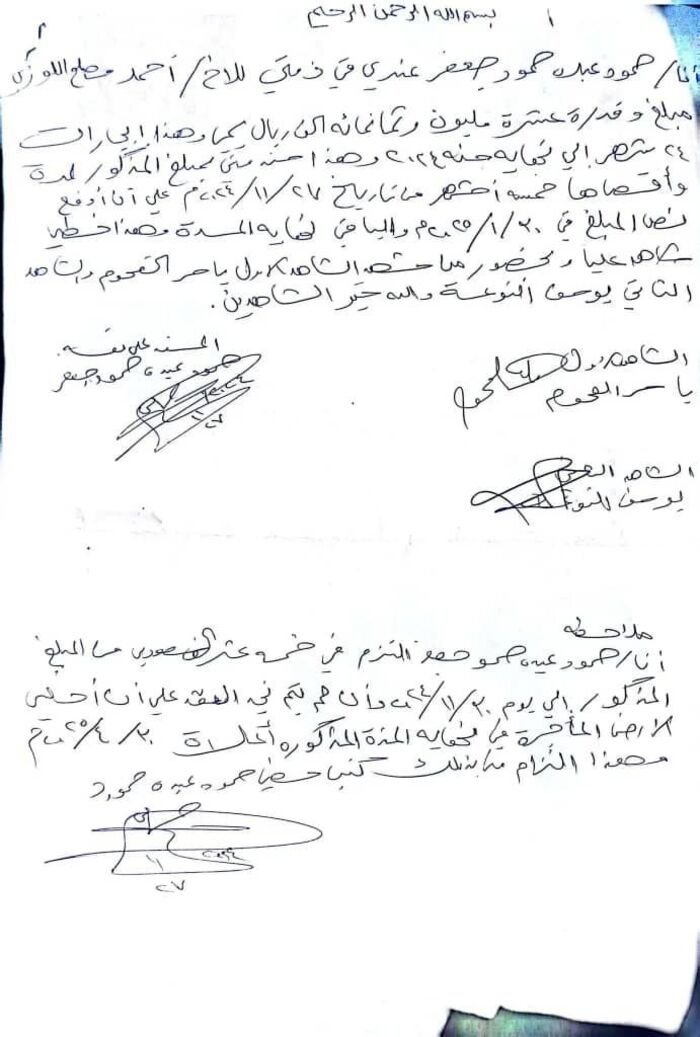 بسم الله الرحمن الرحيم
أنا/ حمود عبده حمود جعفر عندي في ذمتي للاخ/ أحمد مصلح اللوزي
مبلغ وقدرة عشرة مليون وثمانمائه الف ريال يمني وهذا إيجارات
٢٤ شهر إلى نهايه سنه ٢٠٢٤ وهذا سند مني بمبلغ المذكور لمدة
وأقصاها خمسه أشهر من تاريخ ٢٧/١١/٢٠٢٤م على أن أدفع
نص المبلغ في ٣٠/١/٢٠٢٥م والباقي نهايه المدة وهذا خطي
شاهد عليا وبحضور من الشاهد الاول ياسر القحوم والشاهد
الثاني يوسف النوعة والله خير الشاهدين.
على نفسه.
حمود عبده حمود جعفر
٢٠٢٤
١١
٢٧
الشاهد الاول
ياسر القحوم
الشاهد الثاني
يوسف النوعة
ملاحظه
أنا/ حمود عبده حمود جعفر التزم في خمسه عشر الف سعودي من المبلغ
المذكور إلى يوم ٣٠/١١/٢٠٢٤ وأن لم يتم في العقد على أن أخلي
الارض المأجرة في نهايه المدة المذكوره أعلاة ٣٠/٤/٢٠٢٥م
وهذا التزام مني بذلك حمود عبده حمود
٢٠٢٤
١١
٢٧